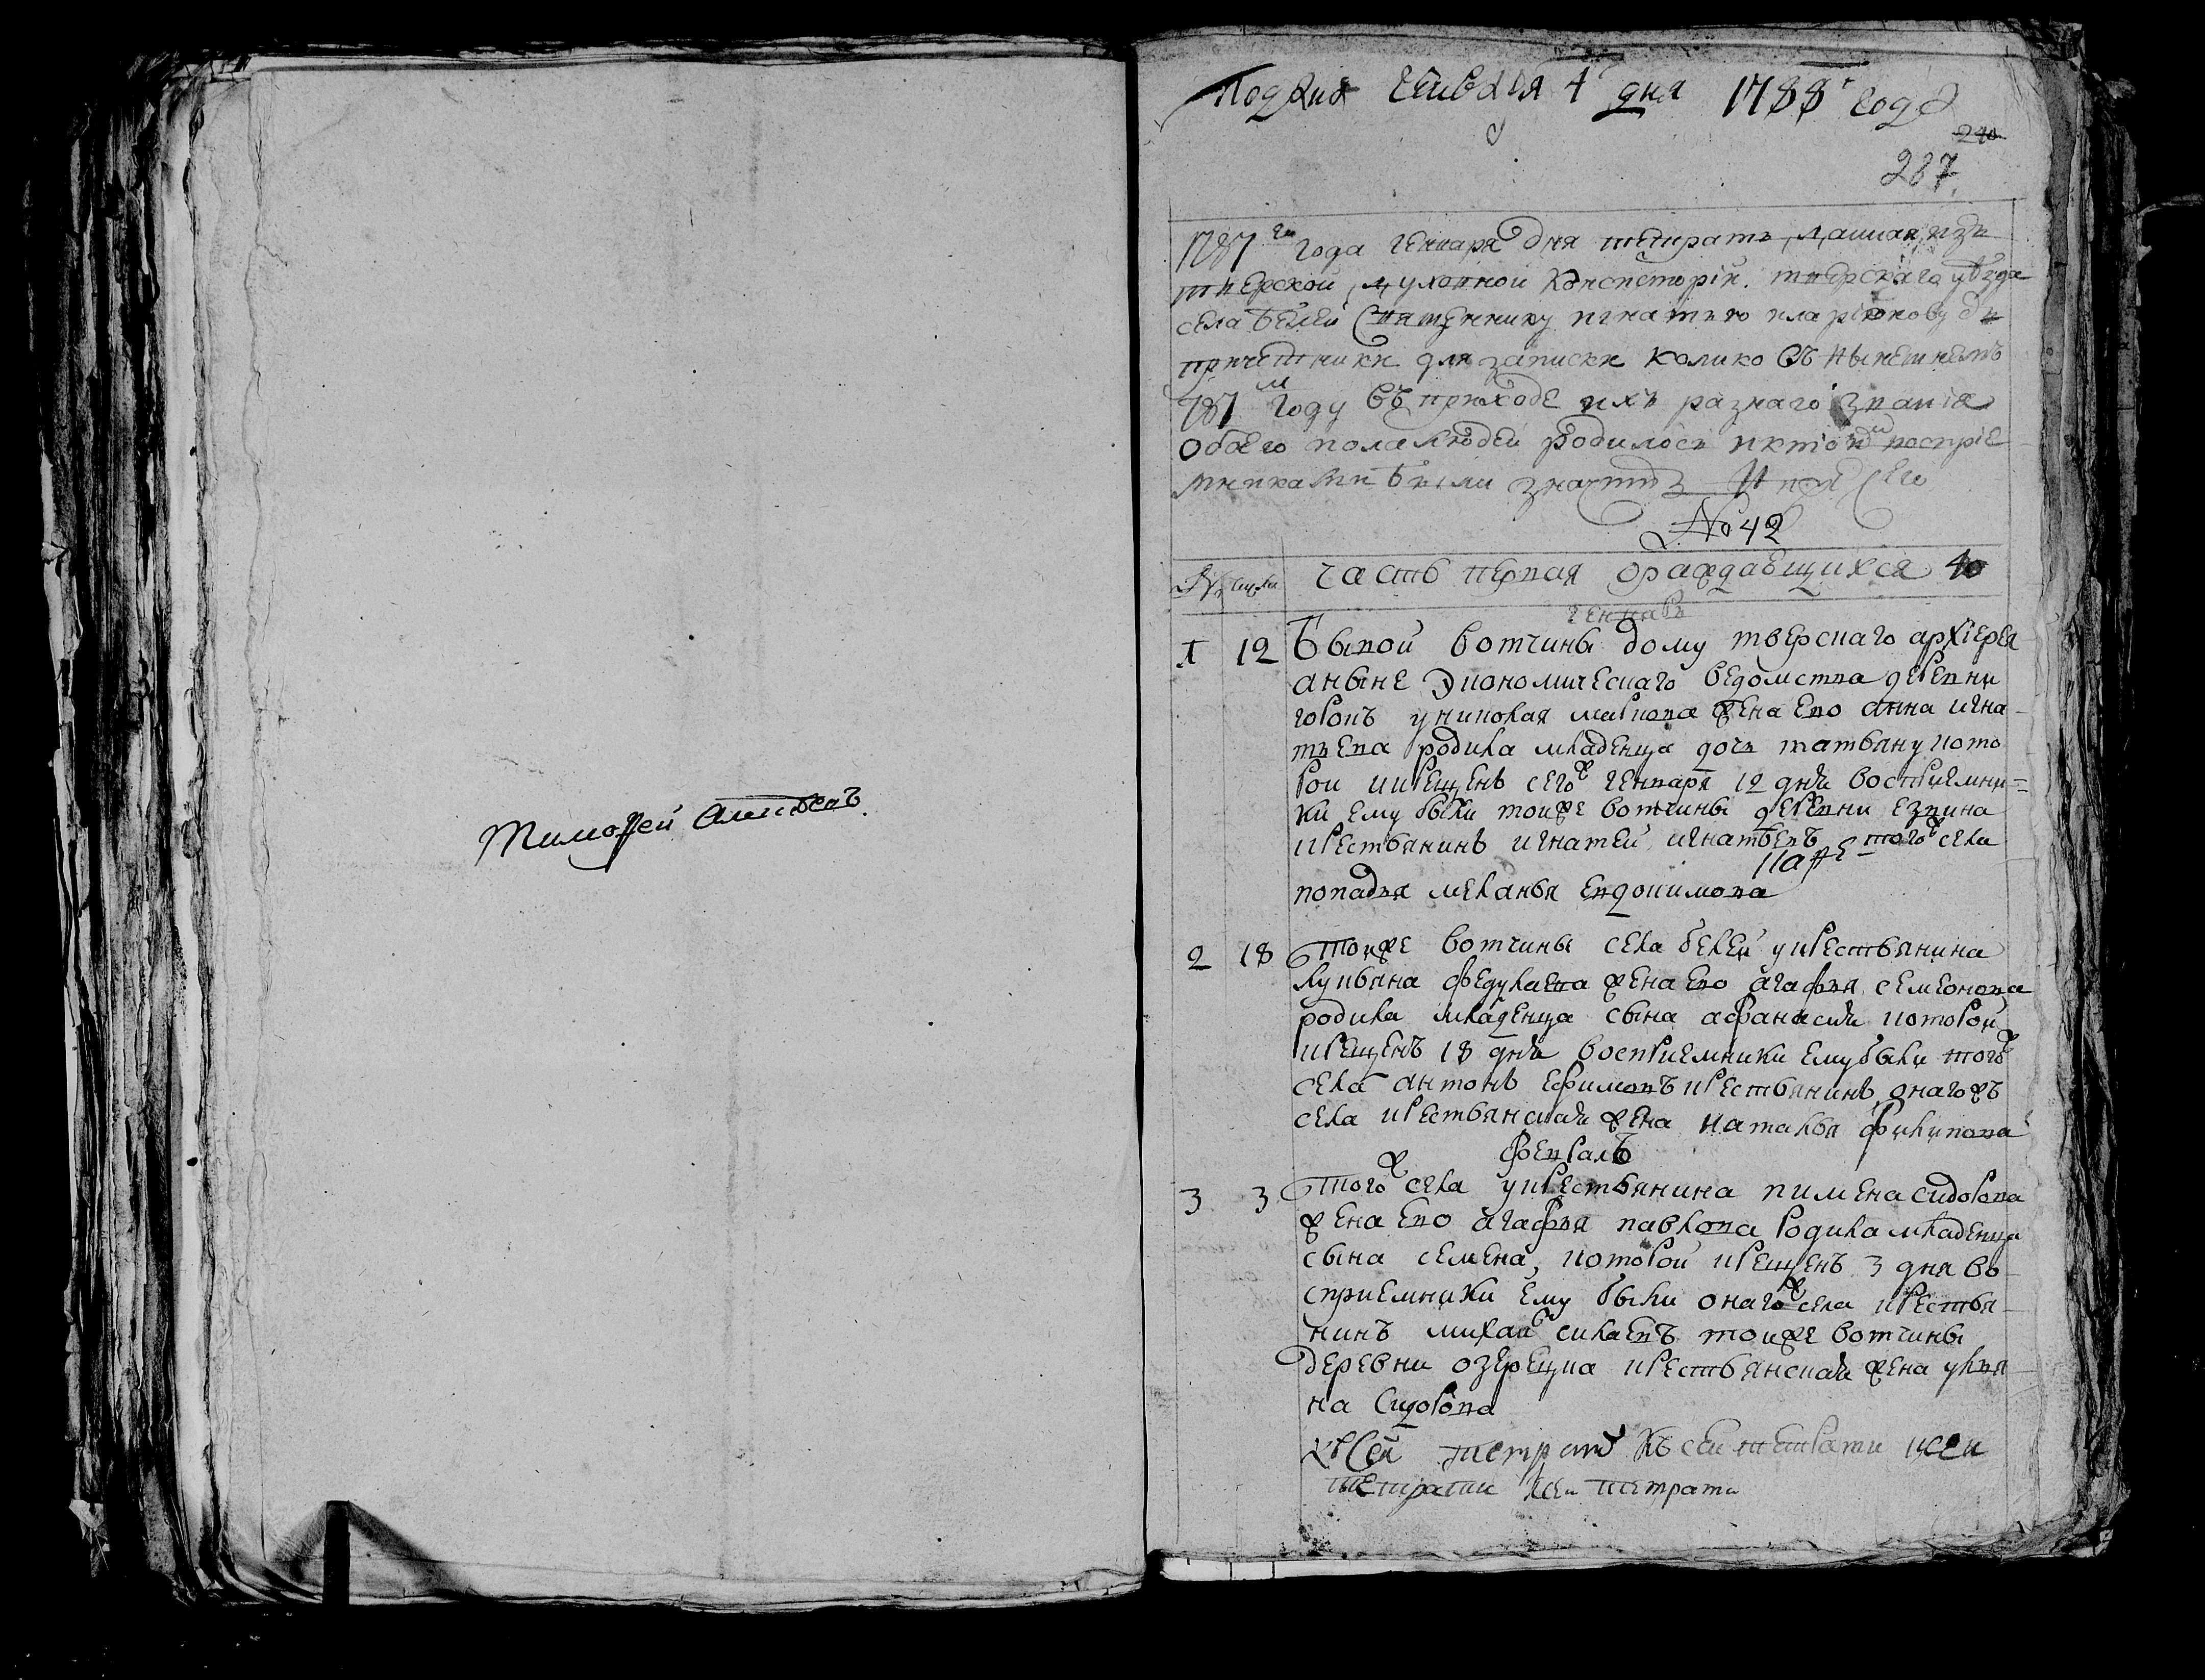 Тимофей
Подана генваря 4 дня 1788 года
240
287
1787 го года генваря дня тетрать данная изъ
тверской духовной консисторїи тверскаго уѣзда
села Белей священнику игнатью иларїонову съ
причетники для записки колико въ нынешнемъ
787 м году въ приходе ихъ разнаго званїя
обоего пола людей родилось и кто имъ воспрїе
мниками были значитъ ниже сего
№ 42
№ числа часть первая о раждающихся 40
генварь
1 12 Бывой вотчины дому тверскаго архїерея
а ныне экономическаго ведомства деревни
горокъ у маркова жена ево анна игна
тьева родила младенца дочь татьяну кото
рой и крещенъ сего ж генваря 12 дня восприемни
ки ему были тоиже вотчины деревни езвина
крестьянинъ игнатей игнатьевъ того ж села
попадья меланья евдокимова
2 18 тоиже вотчины села белей у крестьянина
лукьяна федулаева жена ево агафья семенова
родила младенца сына афанасия которой
крещенъ 18 дня восприемники ему были того ж
села антонъ ефимовъ крестьянинъ онагожъ
села крестьянская жена наталья филипова
февраль
3 3 того ж села у крестьянина пимена сидорова
жена ево агафья павлова родила младенца
сына семена, которой крещенъ 3 дня во
сприемники ему были онаго ж села крестья
нинъ михайла силаевъ тоиже вотчины
деревни озерецка крестьянская жена улья
на Сидорова
к Сей тетрати къ сей тетрати к сей
тетрати к сей тетрати